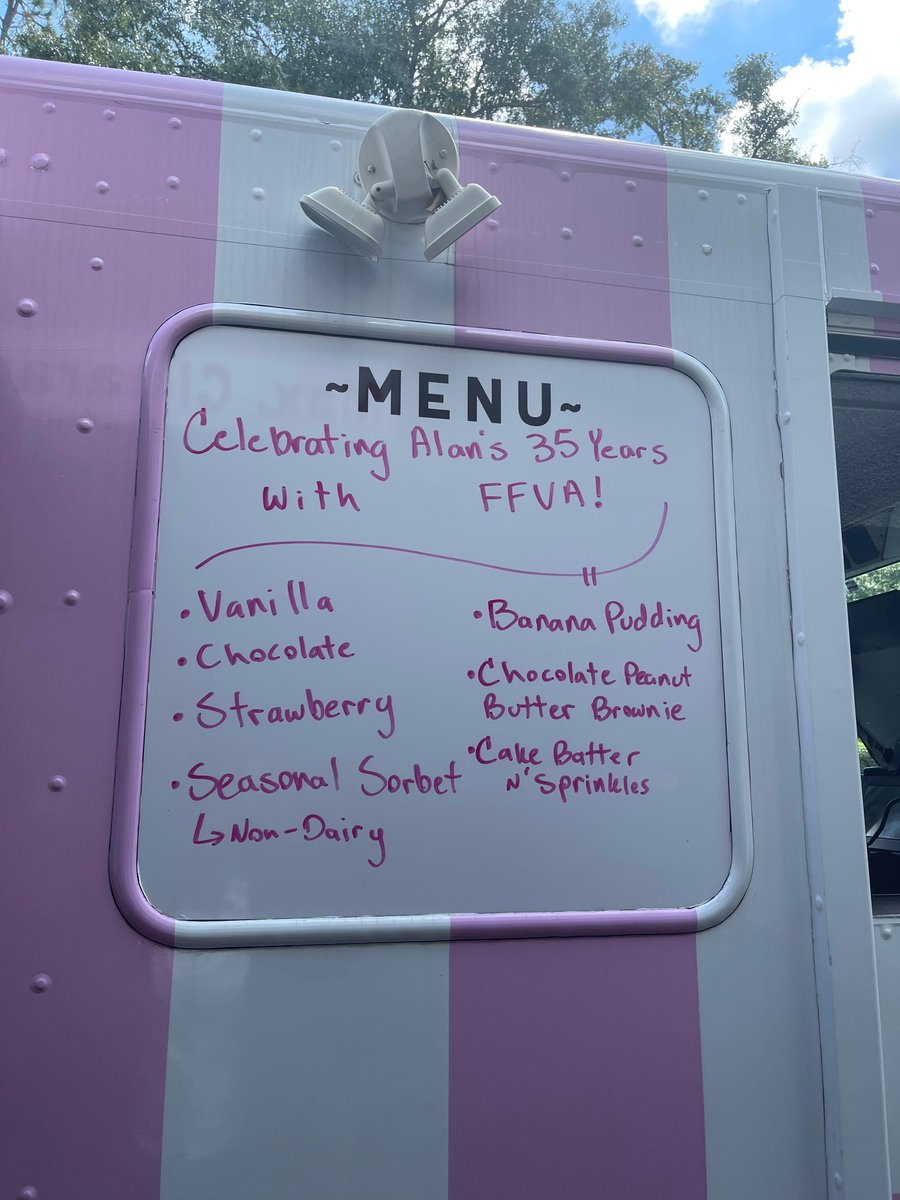 ~MENU~
Celebrating Alan's 35 Years
with FFVA!
• Vanilla
• Chocolate
• Strawberry
• Seasonal Sorbet
↳ Non-Dairy
• Banana Pudding
• Chocolate Peanut
Butter Brownie
• Cake Batter
N' Sprinkles